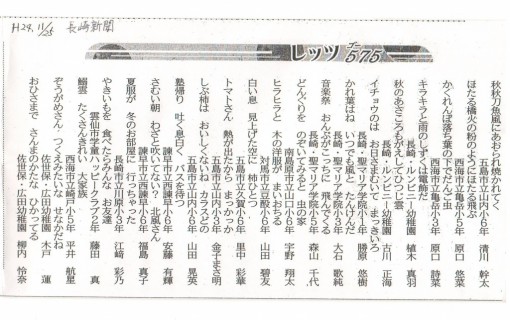 H24.11/25 長崎新聞
レッツチー575
秋秋刀魚風にあおられ焼かれてく
五島市立山内小6年 清川 幹太
ほたる橋火の粉のようにほたる飛ぶ
西海市立亀岳小5年 原口 悠菜
かくれんぼ落ち葉の下でさんぽ虫
西海市立亀岳小3年 原口 詩菜
キラキラと雨のしずくは電飾だ
長崎・ルンビニー幼稚園 植木 真羽
秋のあさこころもがえしてひつじ雲
長崎・ルンビニー幼稚園 古川 正海
イチョウのは お日さまむいて まっきいろ
長崎・聖マリア学院小1年 勝原 悠樹
かれ葉はね いつでも風と たたかうんだ
長崎・聖マリア学院小3年 大石 歌純
音楽祭 おんぷがこっちに 飛んでくる
長崎・聖マリア学院小5年 森山 千代
どんぐりを のぞいてみると 虫の家
南島原市立山口小6年 宇野 翔太
ヒラヒラと 木の洋服が まいおちる
対馬市立豆酘小6年 山田 碧友
白い息 見上げた空に ひとつ星
五島市立久賀小6年 里中 彩華
トマトさん 熱が出たから まっかっか
五島市立山内小3年 金子まさ明
しぶ柿は おいしくないね カラスどの
五島市立山内小6年 山田 晃英
塾帰り 吐く息白く バスを待つ
諫早市立西諫早小6年 安藤 有輝
さむい朝 わざと吹いてない? 北風さん
諫早市立西諫早小6年 福島 真子
夏服が 冬のお部屋に 行っちゃった
長崎市立川原小3年 江崎 彩乃
やきいもを 食べたらみんな お友達
雲仙市学童ハッピークラブ2年 藤田 真
鰯雲 たくさんきれい 大家族
西海市立大崎小5年 平井 航星
ぞうがめさん・つくえみたいな せなかだね
佐世保・広田幼稚園 木戸 蓮
おひさまで さんまのかたな ひかってる
佐世保・広田幼稚園 柳内 怜奈